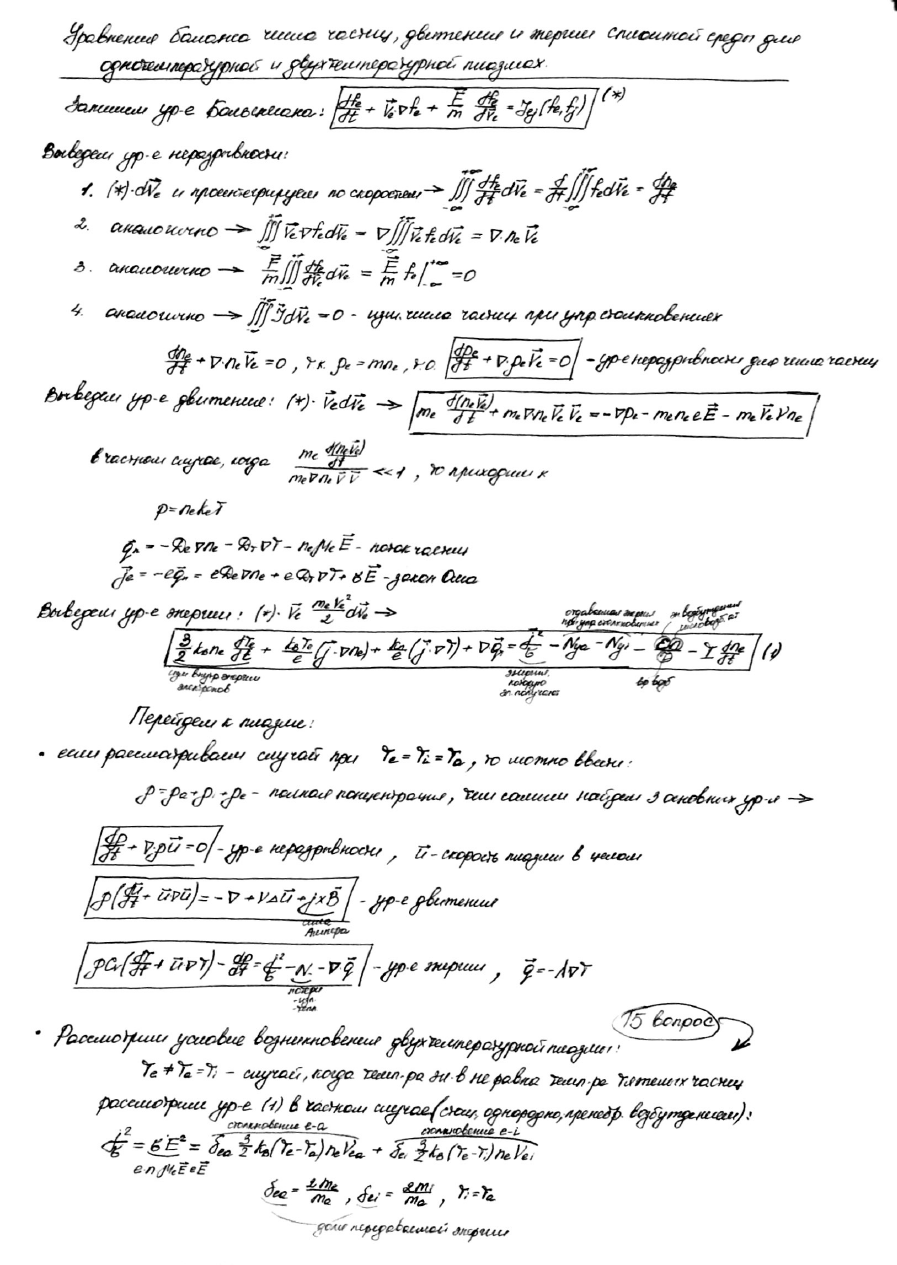 Уравнения баланса числа частиц, движения и энергии сплошной среды для
одготемпературной и двухтемпературной плазмах.
Запишем ур-е Больцмана: df_e/dt + V⃗_e ∇f_e + F⃗/m df_e/dV⃗_e = J_ej(f_e, f_j) (*)
Выведем ур-е неразрывности:
1. (*)·dV⃗_e и проинтегрируем по скоростям → ∭_{-∞}^{+∞} df_e/dt dV⃗_e = d/dt ∭_{-∞}^{+∞} f_e dV⃗_e = dn_e/dt
2. аналогично → ∭_{-∞}^{+∞} V⃗_e ∇f_e dV⃗_e = ∇∭_{-∞}^{+∞} V⃗_e f_e dV⃗_e = ∇·n_e V⃗_e
3. аналогично → F⃗/m ∭_{-∞}^{+∞} df_e/dV⃗_e dV⃗_e = F⃗/m f_e |_{-∞}^{+∞} = 0
4. аналогично → ∭_{-∞}^{+∞} J dV⃗_e = 0 - изм. числа частиц при упр. столкновениях
dn_e/dt + ∇·n_e V⃗_e = 0, т.к. ρ_e = m n_e, то dρ_e/dt + ∇·ρ_e V⃗_e = 0 - ур-е неразрывности для числа частиц
Выведем ур-е движения: (*)·V⃗_e dV⃗_e → m_e d(n_e V⃗_e)/dt + m_e ∇n_e V⃗_e V⃗_e = -∇p_e - m_e n_e e E⃗ - m_e V⃗_e ν n_e
в частном случае, когда m_e d(n_e V⃗_e)/dt / m_e ∇n_e V⃗ V⃗ << 1, то приходим к
p = n_e k_e T
q⃗_n = -D_e ∇n_e - D_T ∇T - n_e μ_e E⃗ - поток частиц
j⃗_e = -e q⃗_n = e D_e ∇n_e + e D_T ∇T + σE⃗ - закон Ома
Выведем ур-е энергии: (*)·V⃗_e m_e V_e²/2 dV⃗_e →
отдаваемая энергия
при упр столкновениях
3/2 k_B n_e dT_e/dt + k_B T_e/e (j⃗·∇n_e) + k_B/e (j⃗·∇T) + ∇q⃗_e = j²/σ - N_уа - N_уi - I dn_e/dt (1)
изм внутр энергии
электронов
энергия,
которую
эл. получили
Перейдем к плазме:
• если рассматриваем случай при T_e = T_i = T_a, то можно ввести:
ρ = ρ_a + ρ_i + ρ_e - полная концентрация, тем самым найдем 3 основных ур-я →
dρ/dt + ∇·ρu⃗ = 0 - ур-е неразрывности, u⃗ - скорость плазмы в целом
ρ(du⃗/dt + u⃗∇u⃗) = -∇ + ν∆u⃗ + j×B⃗ - ур-е движения
сила
Ампера
ρC_v(dT/dt + u⃗∇T) - dp/dt = j²/σ - N. - ∇q⃗ - ур-е энергии, q⃗ = -λ∇T
потери
-изл
15 вопрос
• Рассмотрим условие возникновения двухтемпературной плазмы:
T_e ≠ T_a = T_i - случай, когда темп-ра эл-в не равна темп-ре тяжелых частиц
рассмотрим ур-е (1) в частном случае (стац, однородно, пренебр. возбуждением):
столкновение e-a столкновение e-i
j²/σ = σE² = δ_ea 3/2 k_B(T_e - T_a)n_e ν_ea + δ_ei 3/2 k_B(T_e - T_i)n_e ν_ei
e n μ_e E⃗ e E⃗
δ_ea = 2m_e/m_a, δ_ei = 2m_i/m_a, T_i = T_a
доля передаваемой энергии